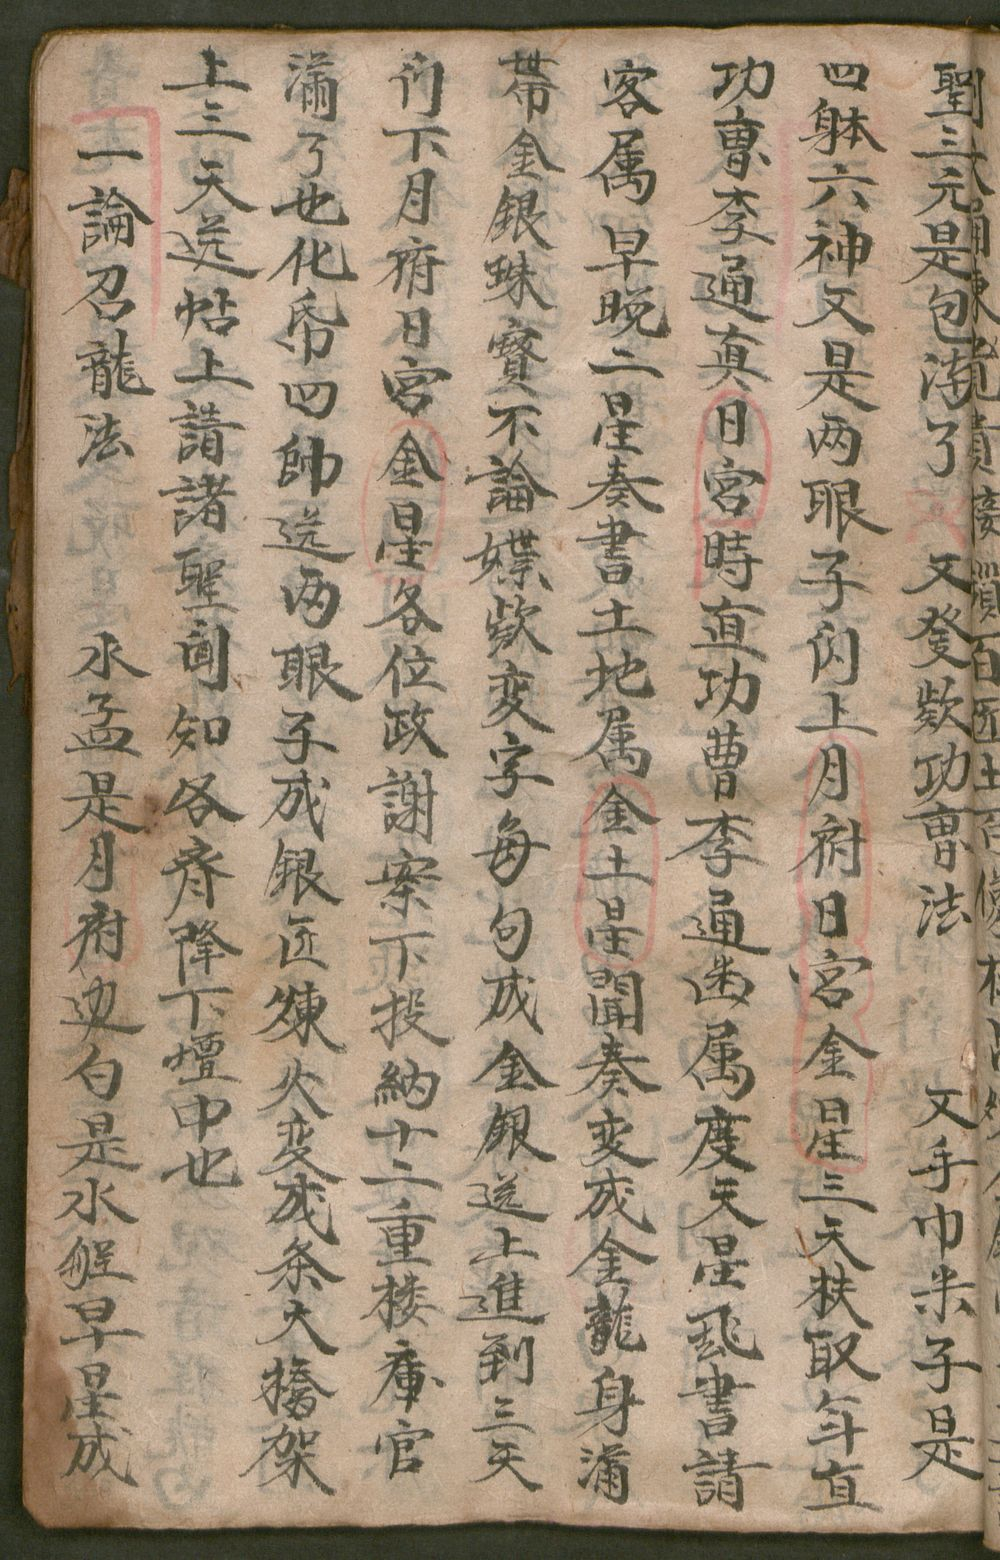 聖三元是包渧了　又發欵功曹法　文手巾米子是
四躰六神文是两眼子閃上月府日宮金星三天扶取年直
功曹李通真日宮時直功曹李通凾属度天星飛書請
客属早晚二星奏書土地属金土星聞奏变成金龍身滿
帶金銀珠寳不論媟欵变字每句成金銀送上進到三天
門下月府日宮金星各位政謝案下投納十二重楼庫官
滿了也化帋四帥送两眼子成银匠煉火变成条大撟架
上三天送帖上請諸聖聞知各齊降下壇中也
一論召龍法　水盂是月府边勺是水解早星成